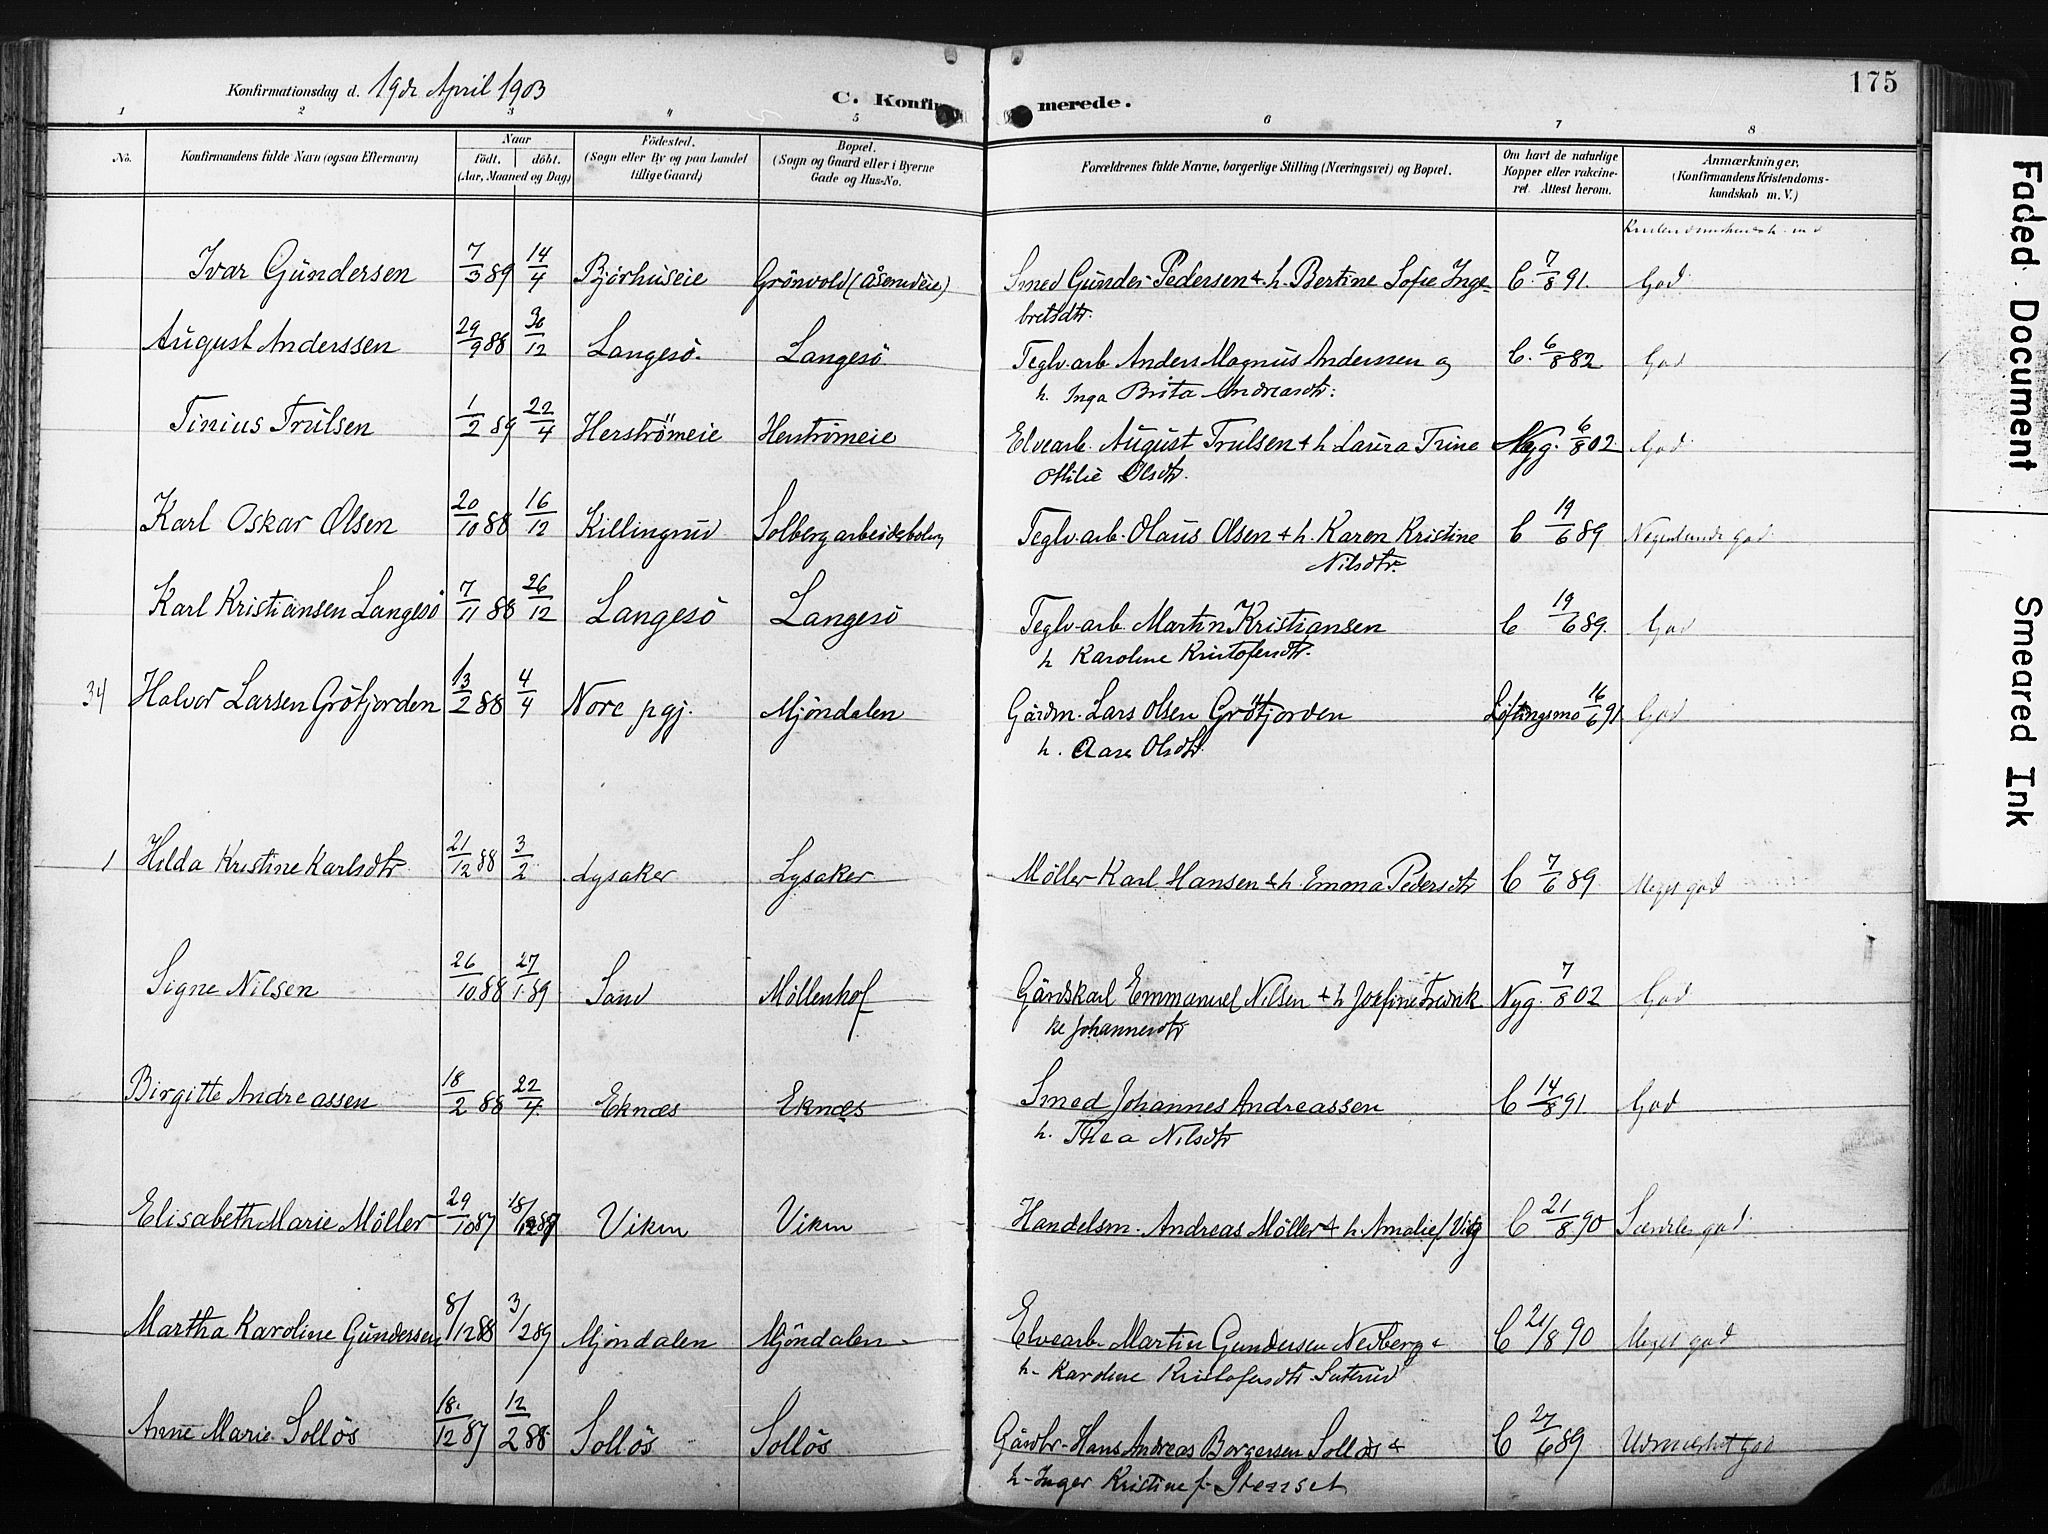 175
Konfirmationsdag d. 19de April 1903
C. Konfirmerede.
1 2 3 " 5 6 7 8
No.
Konfirmandens fulde Navn (ogsaa Efternavn)
Naar
født. døbt.
(Aar, Maaned og Dag)
Fødested.
(Sogn eller By og paa Landet
tillige Gaard)
Bopæl.
(Sogn og Gaard eller i Byerne
Gade og Hus-No.
Forældrenes fulde Navne, borgerlige Stilling (Næringsvei) og Bopæl.
Om havt de naturlige
Kopper eller vakcine-
ret. Attest herom.
Anmærkninger.
(Konfirmandens Kristendoms-
kundskab m. V.)
Ivar Gundersen 7/3 89 14/4 Bjørhuseie Grönvold (Åserudeie) Smed Gunder Pedersen & h. Bertine Sofie Inge-
bretsdtr. C. 7/8 91. God
August Anderssen 29/9 88 30/12 Langesö Langesö Teglv.arb Anders Magnus Anderssen og
h. Inga Brita Andreasdtr. C. 6/8 82 God
Tinius Trulsen 1/2 89 22/4 Herströmeie Herströmeie Elvearb. August Trulsen & h Laura Trine
Otilie Olsdtr. Nyg. 6/8 02. God
Karl Oskar Olsen 20/10 88 16/12 Killingrud Solberg arbeiderbolig Teglv.arb. Olaus Olsen & h. Karen Kristine
Nilsdtr. C 19/6 89. Nogenlunde god
Karl Kristiansen Langesö 7/11 88 26/12 Langesö Langesö Teglv.arb. Martin Kristiansen
h Karoline Kristofersdtr. C 19/6 89. God
34 Halvor Larsen Grötjorden 13/2 88 4/4 Nore pgj. Mjöndalen Gårdm. Lars Olsen Grötjorden
h. Aase Olsdtr. Löftingsmo 16/6 91 God
1 Hilda Kristine Karlsdtr 21/12 88 3/2 Lysaker Lysaker Møller Karl Hansen & h. Emma Pedersdtr C 7/6 89 Meget god
Signe Nilsen 26/10 88 27/1 89 Sand Möllenhof Gårdskarl Emmanuel Nilsen & h Josefine Fredrik
ke Johannesdtr Nyg. 7/8 02 God
Birgitte Andreassen 18/2 88 22/4 Eknæs Eknæs Smed Johannes Andreassen
h. Thea Nilsdtr C 14/8 91 God
Elisabeth Marie Möller 29/10 87 18/12 87 Viken Viken Handelsm. Andreas Møller & h. Amalie f. Vig C. 21/8 90 Særdeles god
Martha Karoline Gundersen 8/12 88 3/2 89 Mjöndalen Mjöndalen Elvearb. Martin Gundersen Nedberg &
h. Karoline Kristofersdtr C 21/8 90 Meget god
Anne Marie Sollös 18/12 87 12/2 88 Sollös Sollös Gårdbr. Hans Andreas Borgersen Sollös &
h. Inger Kristine f. Stenset C 27/6 89 Udmerket god
Faded Document
Smeared Ink